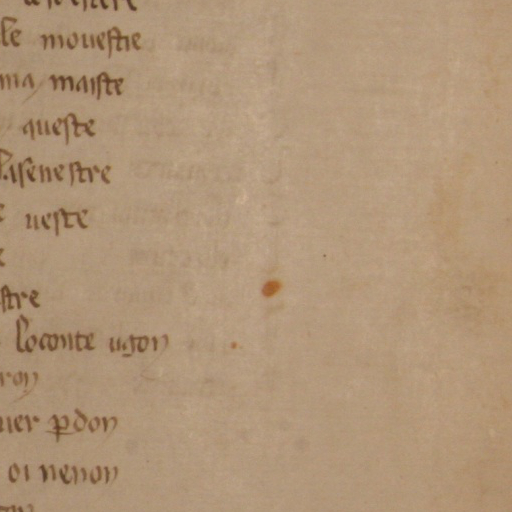 le mouestre
ma maistre
queste
lasenestre
ueste
stre
loconte ugon
ron
uer pdon
oi nenon